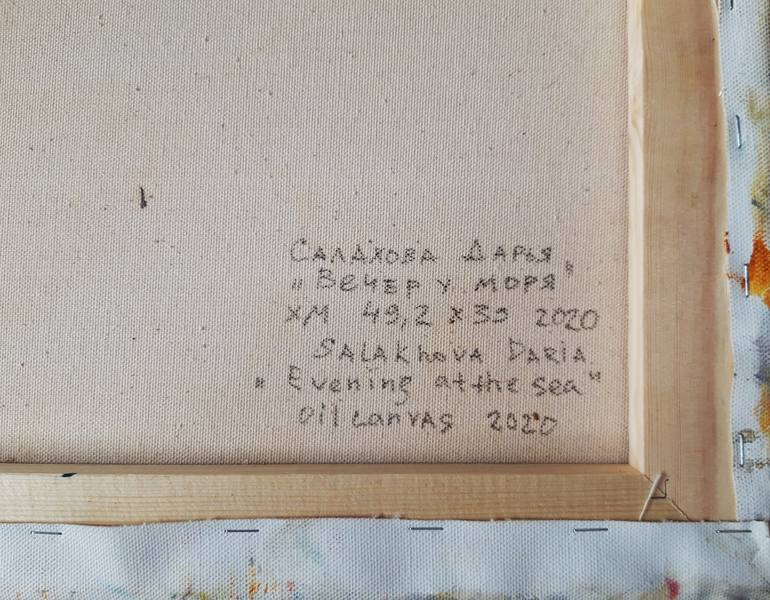 САЛАХОВА ДАРЬЯ
„ВЕЧЕР У МОРЯ"
Х/М 49,2 х 39 2020
SALAKhOVA DARIA
" Evening at the sea"
oil canvas 2020